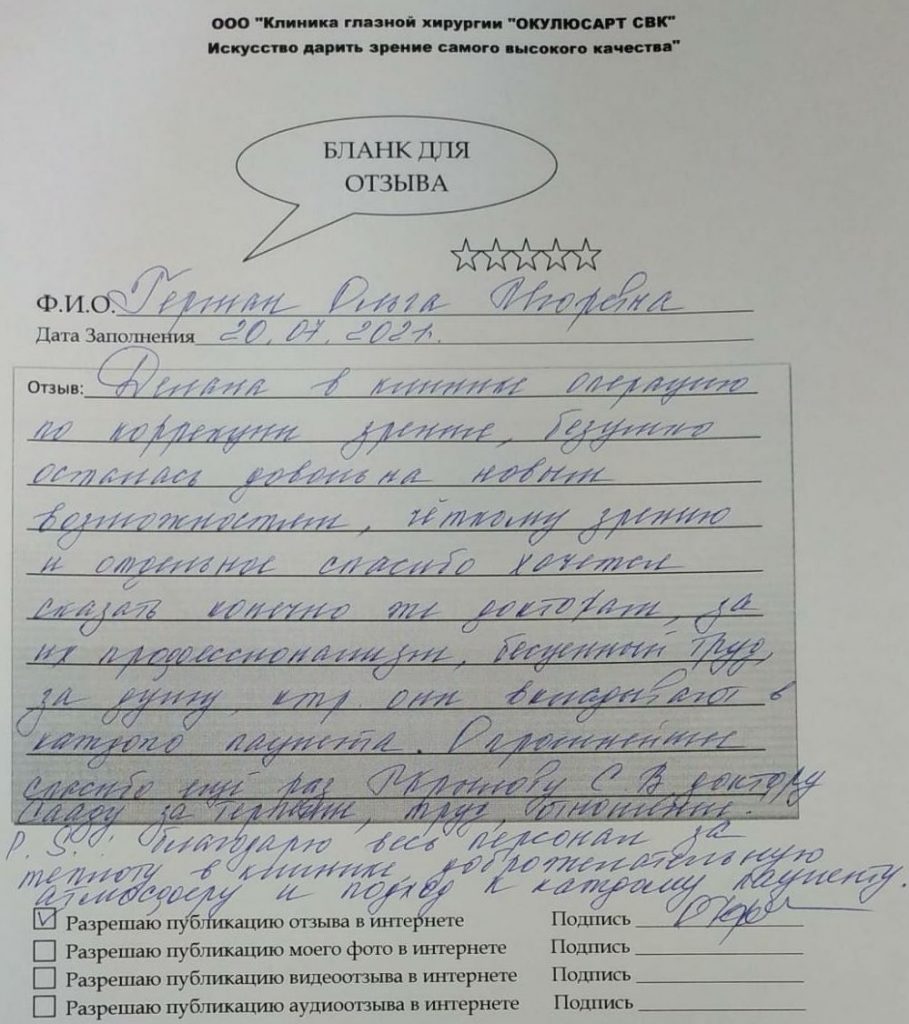 ООО "Клиника глазной хирургии "ОКУЛЮСАРТ СВК"
Искусство дарить зрение самого высокого качества"
БЛАНК ДЛЯ
ОТЗЫВА
Ф.И.О. Герман Ольга Игоревна
Дата Заполнения 20.07.2021г.
Отзыв: Делала в клинике операцию
по коррекции зрение, безумно
осталась довольна новым
возможностям, чёткому зрению
и отдельное спасибо хочется
сказать конечно же докторам, за
их профессионализм, бесценный труд,
за душу, ктр. они вкладывают в
каждого пациента. Огромнейшее
спасибо ещё раз С.В, доктору
Сааду за терпение, труд, отношение.
P.S.: Благодарю весь персонал за
теплоту в клинике, доброжелательную
атмосферу и подход к каждому пациенту.
Разрешаю публикацию отзыва в интернете Подпись
Разрешаю публикацию моего фото в интернете Подпись
Разрешаю публикацию видеоотзыва в интернете Подпись
Разрешаю публикацию аудиоотзыва в интернете Подпись